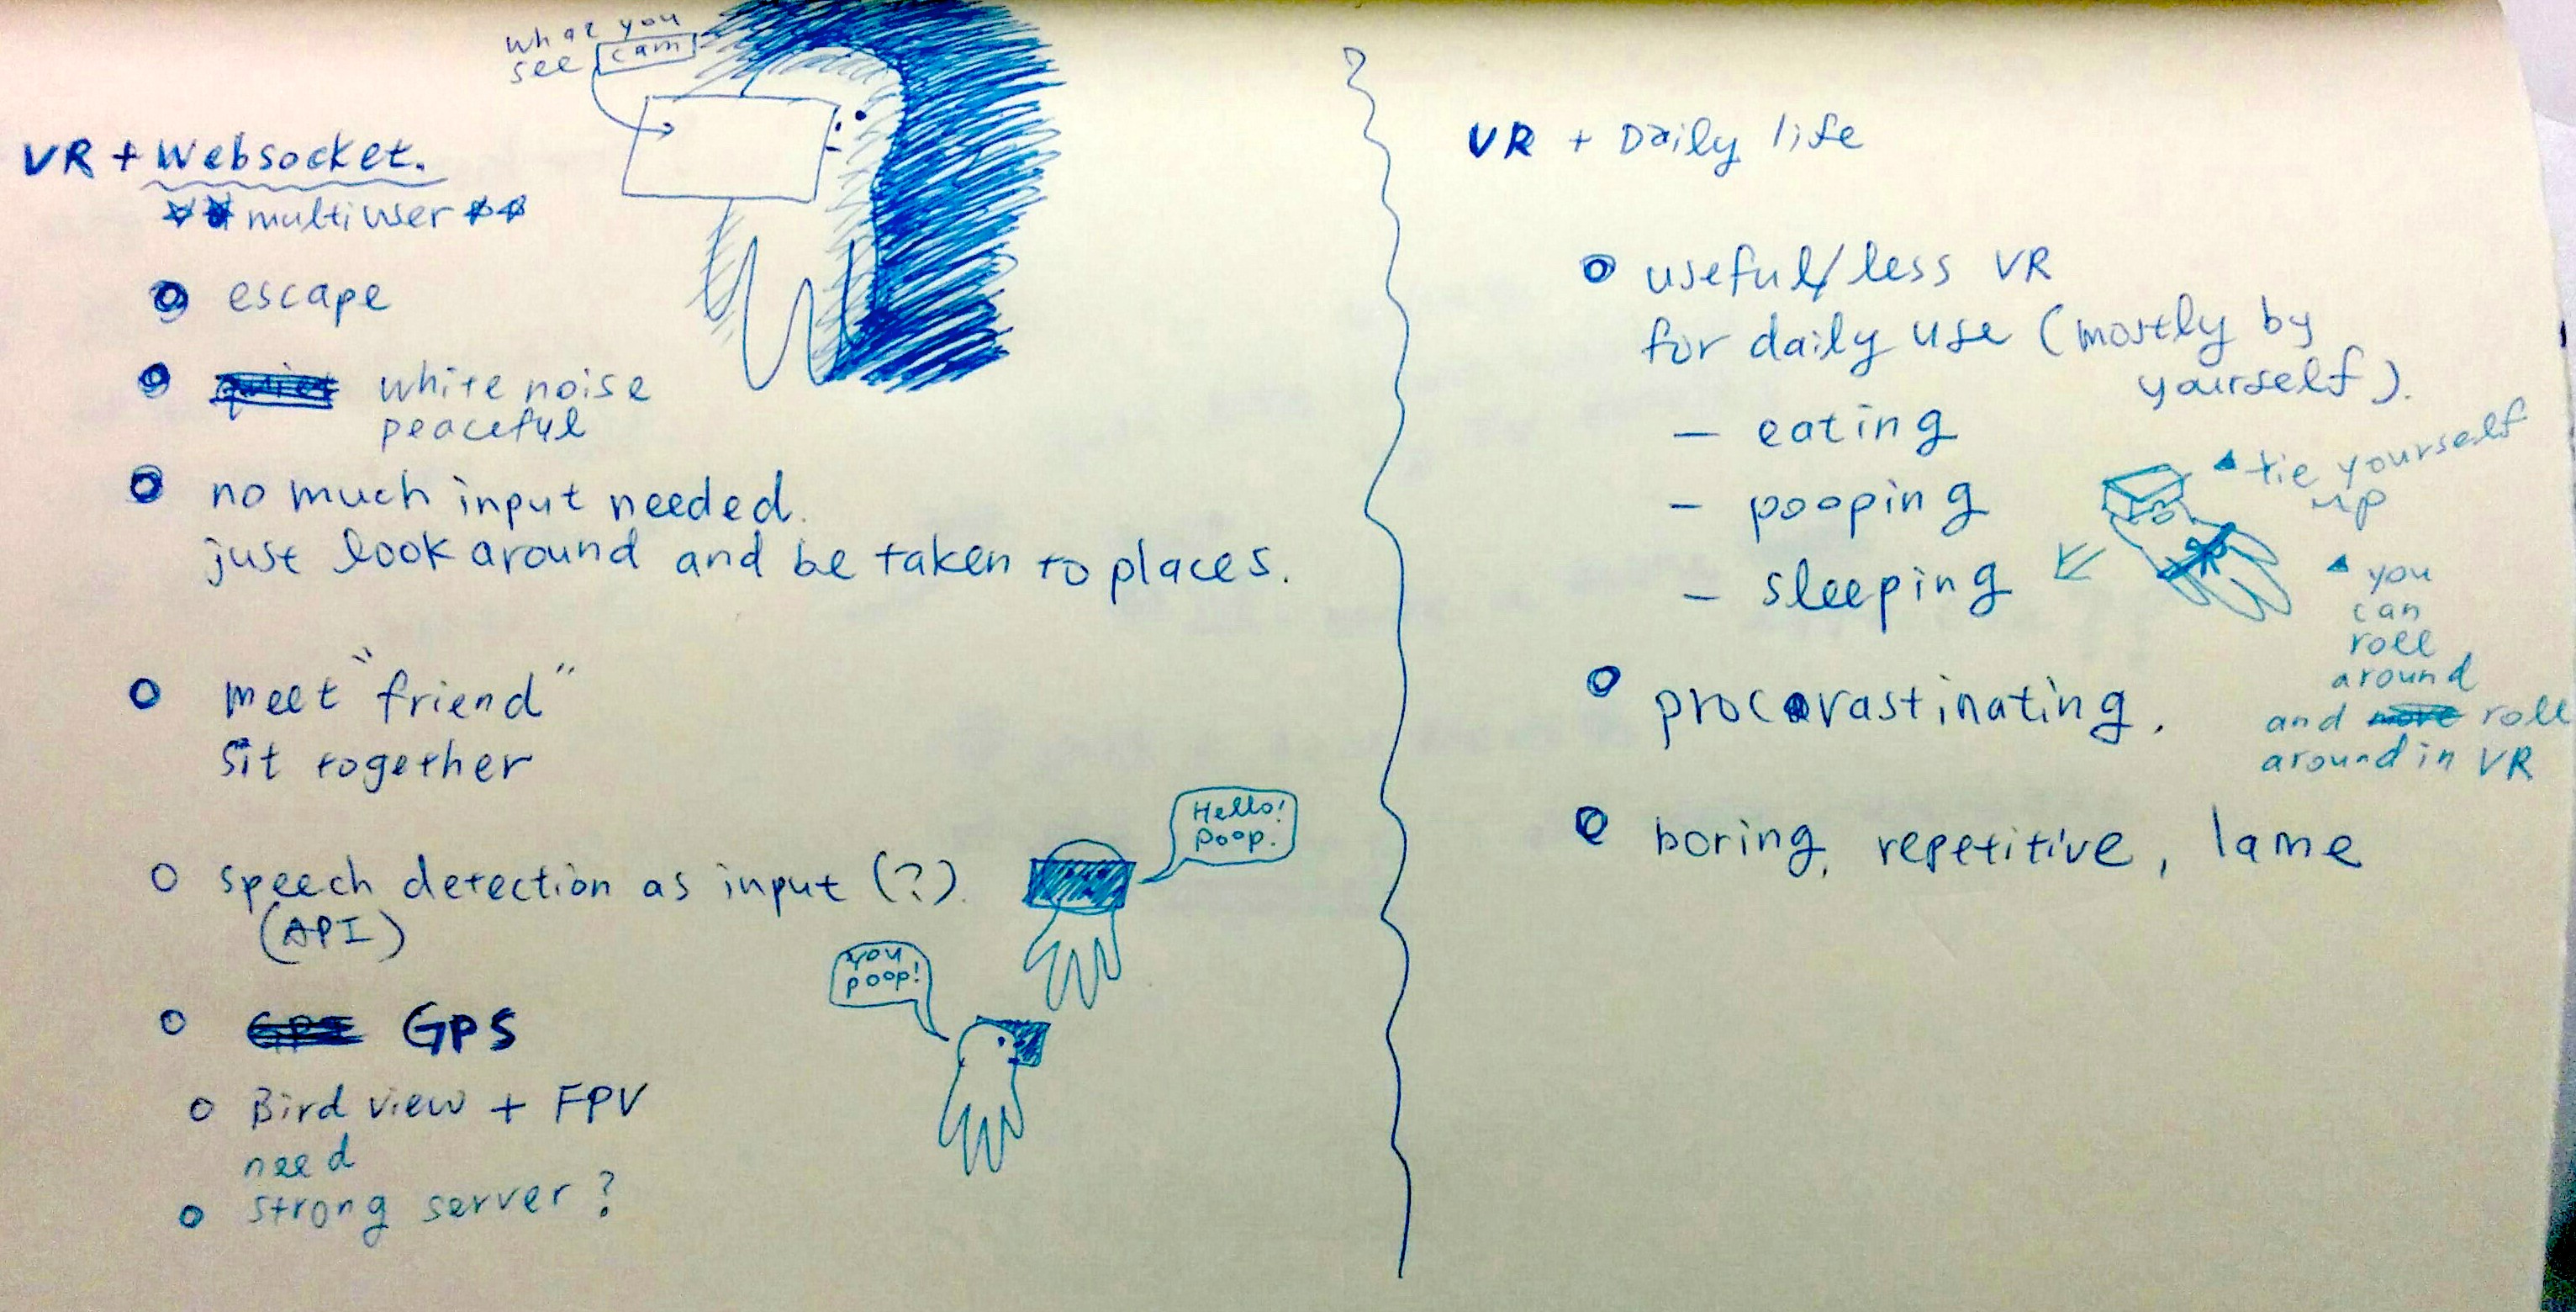 what you
see cam
VR + Websocket.
multiuser
escape
quiet white noise
peaceful
no much input needed.
just look around and be taken to places.
meet "friend"
sit together
speech detection as input (?).
(API)
Hello!
poop.
you
poop!
GPS GPS
Bird view + FPV
need
strong server?
VR + Daily life
useful/less VR
for daily use (mostly by
yourself).
- eating
- pooping
- sleeping
tie yourself
up
you
can
roll
around
and move roll
around in VR
procrastinating.
boring, repetitive, lame